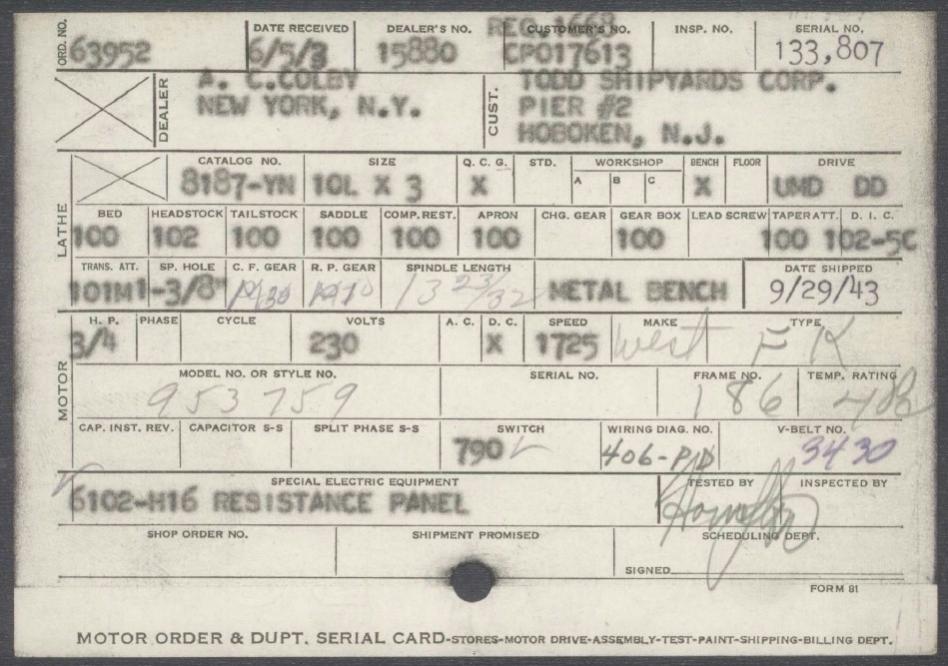 ORD. NO. 63952 DATE RECEIVED 6/5/3 DEALER'S NO. 15880 REQ 1668 CUSTOMER'S NO. CPO17613 INSP. NO. SERIAL NO. 133,807
DEALER A. C.COLBY CUST. TODD SHIPYARDS CORP.
NEW YORK, N.Y. PIER #2
HOBOKEN, N.J.
LATHE
CATALOG NO. SIZE Q. C. G. STD. WORKSHOP BENCH FLOOR DRIVE
A B C
8187-YN 10L X 3 X X UMD DD
BED HEADSTOCK TAILSTOCK SADDLE COMP. REST. APRON CHG. GEAR GEAR BOX LEAD SCREW TAPER ATT. D. I. C.
100 102 100 100 100 100 100 100 102-5C
TRANS. ATT. SP. HOLE C. F. GEAR R. P. GEAR SPINDLE LENGTH DATE SHIPPED
101M 1-3/8" 13 23/32 METAL BENCH 9/29/43
MOTOR
H. P. PHASE CYCLE VOLTS A. C. D. C. SPEED MAKE TYPE
3/4 230 X 1725 West F K
MODEL NO. OR STYLE NO. SERIAL NO. FRAME NO. TEMP. RATING
953759 186
CAP. INST. REV. CAPACITOR S-S SPLIT PHASE S-S SWITCH WIRING DIAG. NO. V-BELT NO.
790 406-P/D 3430
SPECIAL ELECTRIC EQUIPMENT TESTED BY INSPECTED BY
6102-H16 RESISTANCE PANEL
SHOP ORDER NO. SHIPMENT PROMISED SCHEDULING DEPT.
SIGNED
FORM 81
MOTOR ORDER & DUPT. SERIAL CARD-STORES-MOTOR DRIVE-ASSEMBLY-TEST-PAINT-SHIPPING-BILLING DEPT.